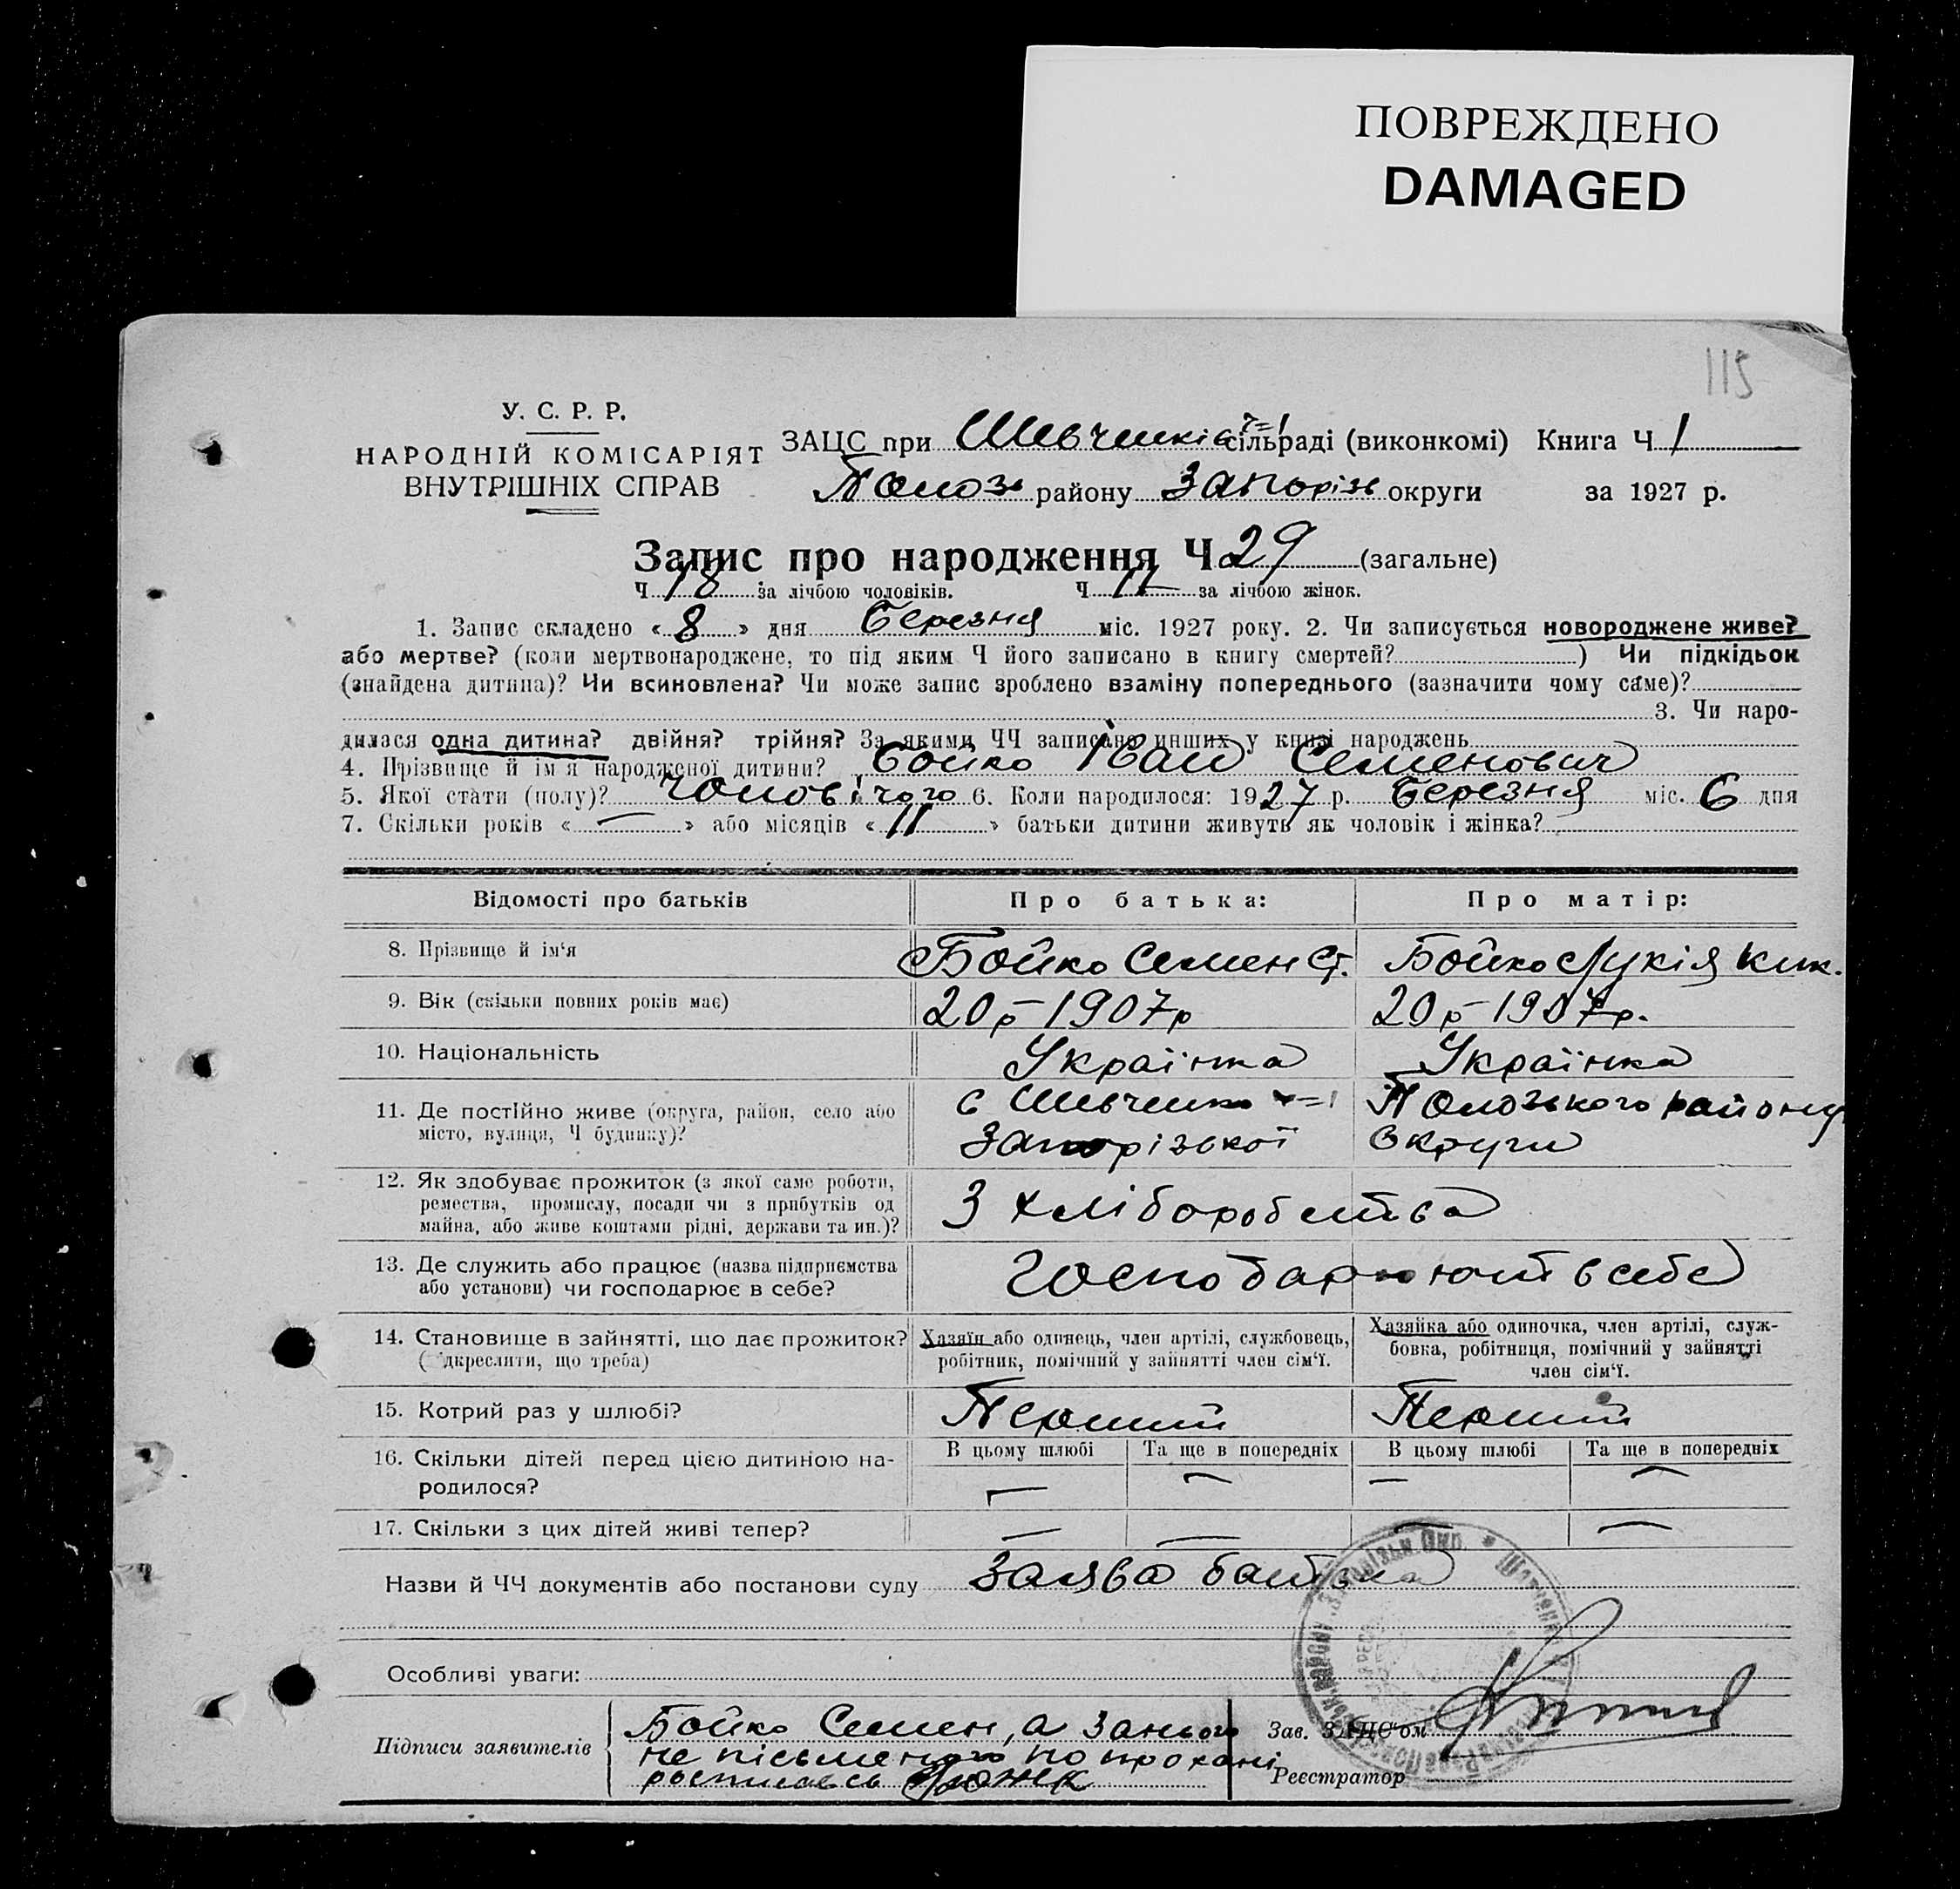 ПОВРЕЖДЕНО
DAMAGED
115
У. С. Р. Р.
НАРОДНІЙ КОМІСАРІЯТ
ВНУТРІШНІХ СПРАВ
ЗАЦС при Шевченків №1 сільраді (виконкомі) Книга Ч 1
Полозь району Запоріж округи за 1927 р.
Запис про народження Ч 29 (загальне)
Ч 18 за лічбою чоловіків. Ч 11 за лічбою жінок.
1. Запис складено «8» дня Березня міс. 1927 року. 2. Чи записується новороджене живе?
або мертве? (коли мертвонароджене, то під яким Ч його записано в книгу смертей? ) Чи підкідьок
(знайдена дитина)? Чи всиновлена? Чи може запис зроблено взаміну попереднього (зазначити чому саме)?
3. Чи наро-
дилася одна дитина? двійня? трійня? За якими ЧЧ записано инших у книзі народжень
4. Прізвище й ім'я народженої дитини? Бойко Іван Семенович
5. Якої стати (полу)? чоловічого 6. Коли народилося: 1927 р. Березня міс. 6 дня
7. Скільки років « — » або місяців « 11 » батьки дитини живуть як чоловік і жінка?
Відомості про батьків Про батька: Про матір:
8. Прізвище й ім'я Бойко Семен Ст. Бойко Лукія Ник.
9. Вік (скільки повних років має) 20 р – 1907 р 20 р – 1907 р.
10. Національність Українка Українка
11. Де постійно живе (округа, район, село або
місто, вулиця, Ч будинку)?
с Шевченко №1 Полозького району
Запорізької Округи
12. Як здобуває прожиток (з якої саме роботи,
ремества, промислу, посади чи з прибутків од
майна, або живе коштами рідні, держави та ин.)?
З хліборобства
13. Де служить або працює (назва підприємства
або установи) чи господарює в себе?
Господарюють в себе
14. Становище в зайнятті, що дає прожиток?
(дкреслити, що треба)
Хазяїн або одинець, член артілі, службовець,
робітник, помічний у зайнятті член сім'ї.
Хазяйка або одиночка, член артілі, служ-
бовка, робітниця, помічний у зайнятті
член сім'ї.
15. Котрий раз у шлюбі? Перший Перший
В цьому шлюбі Та ще в попередніх В цьому шлюбі Та ще в попередніх
16. Скільки дітей перед цією дитиною на-
родилося? — — — —
17. Скільки з цих дітей живі тепер? — — — —
Назви й ЧЧ документів або постанови суду Заява батька
Особливі уваги:
Підписи заявителів
Бойко Семен, а за нього
не письменого по прохані
росписавсь
Зав. ЗАЦС'ом
Реєстратор